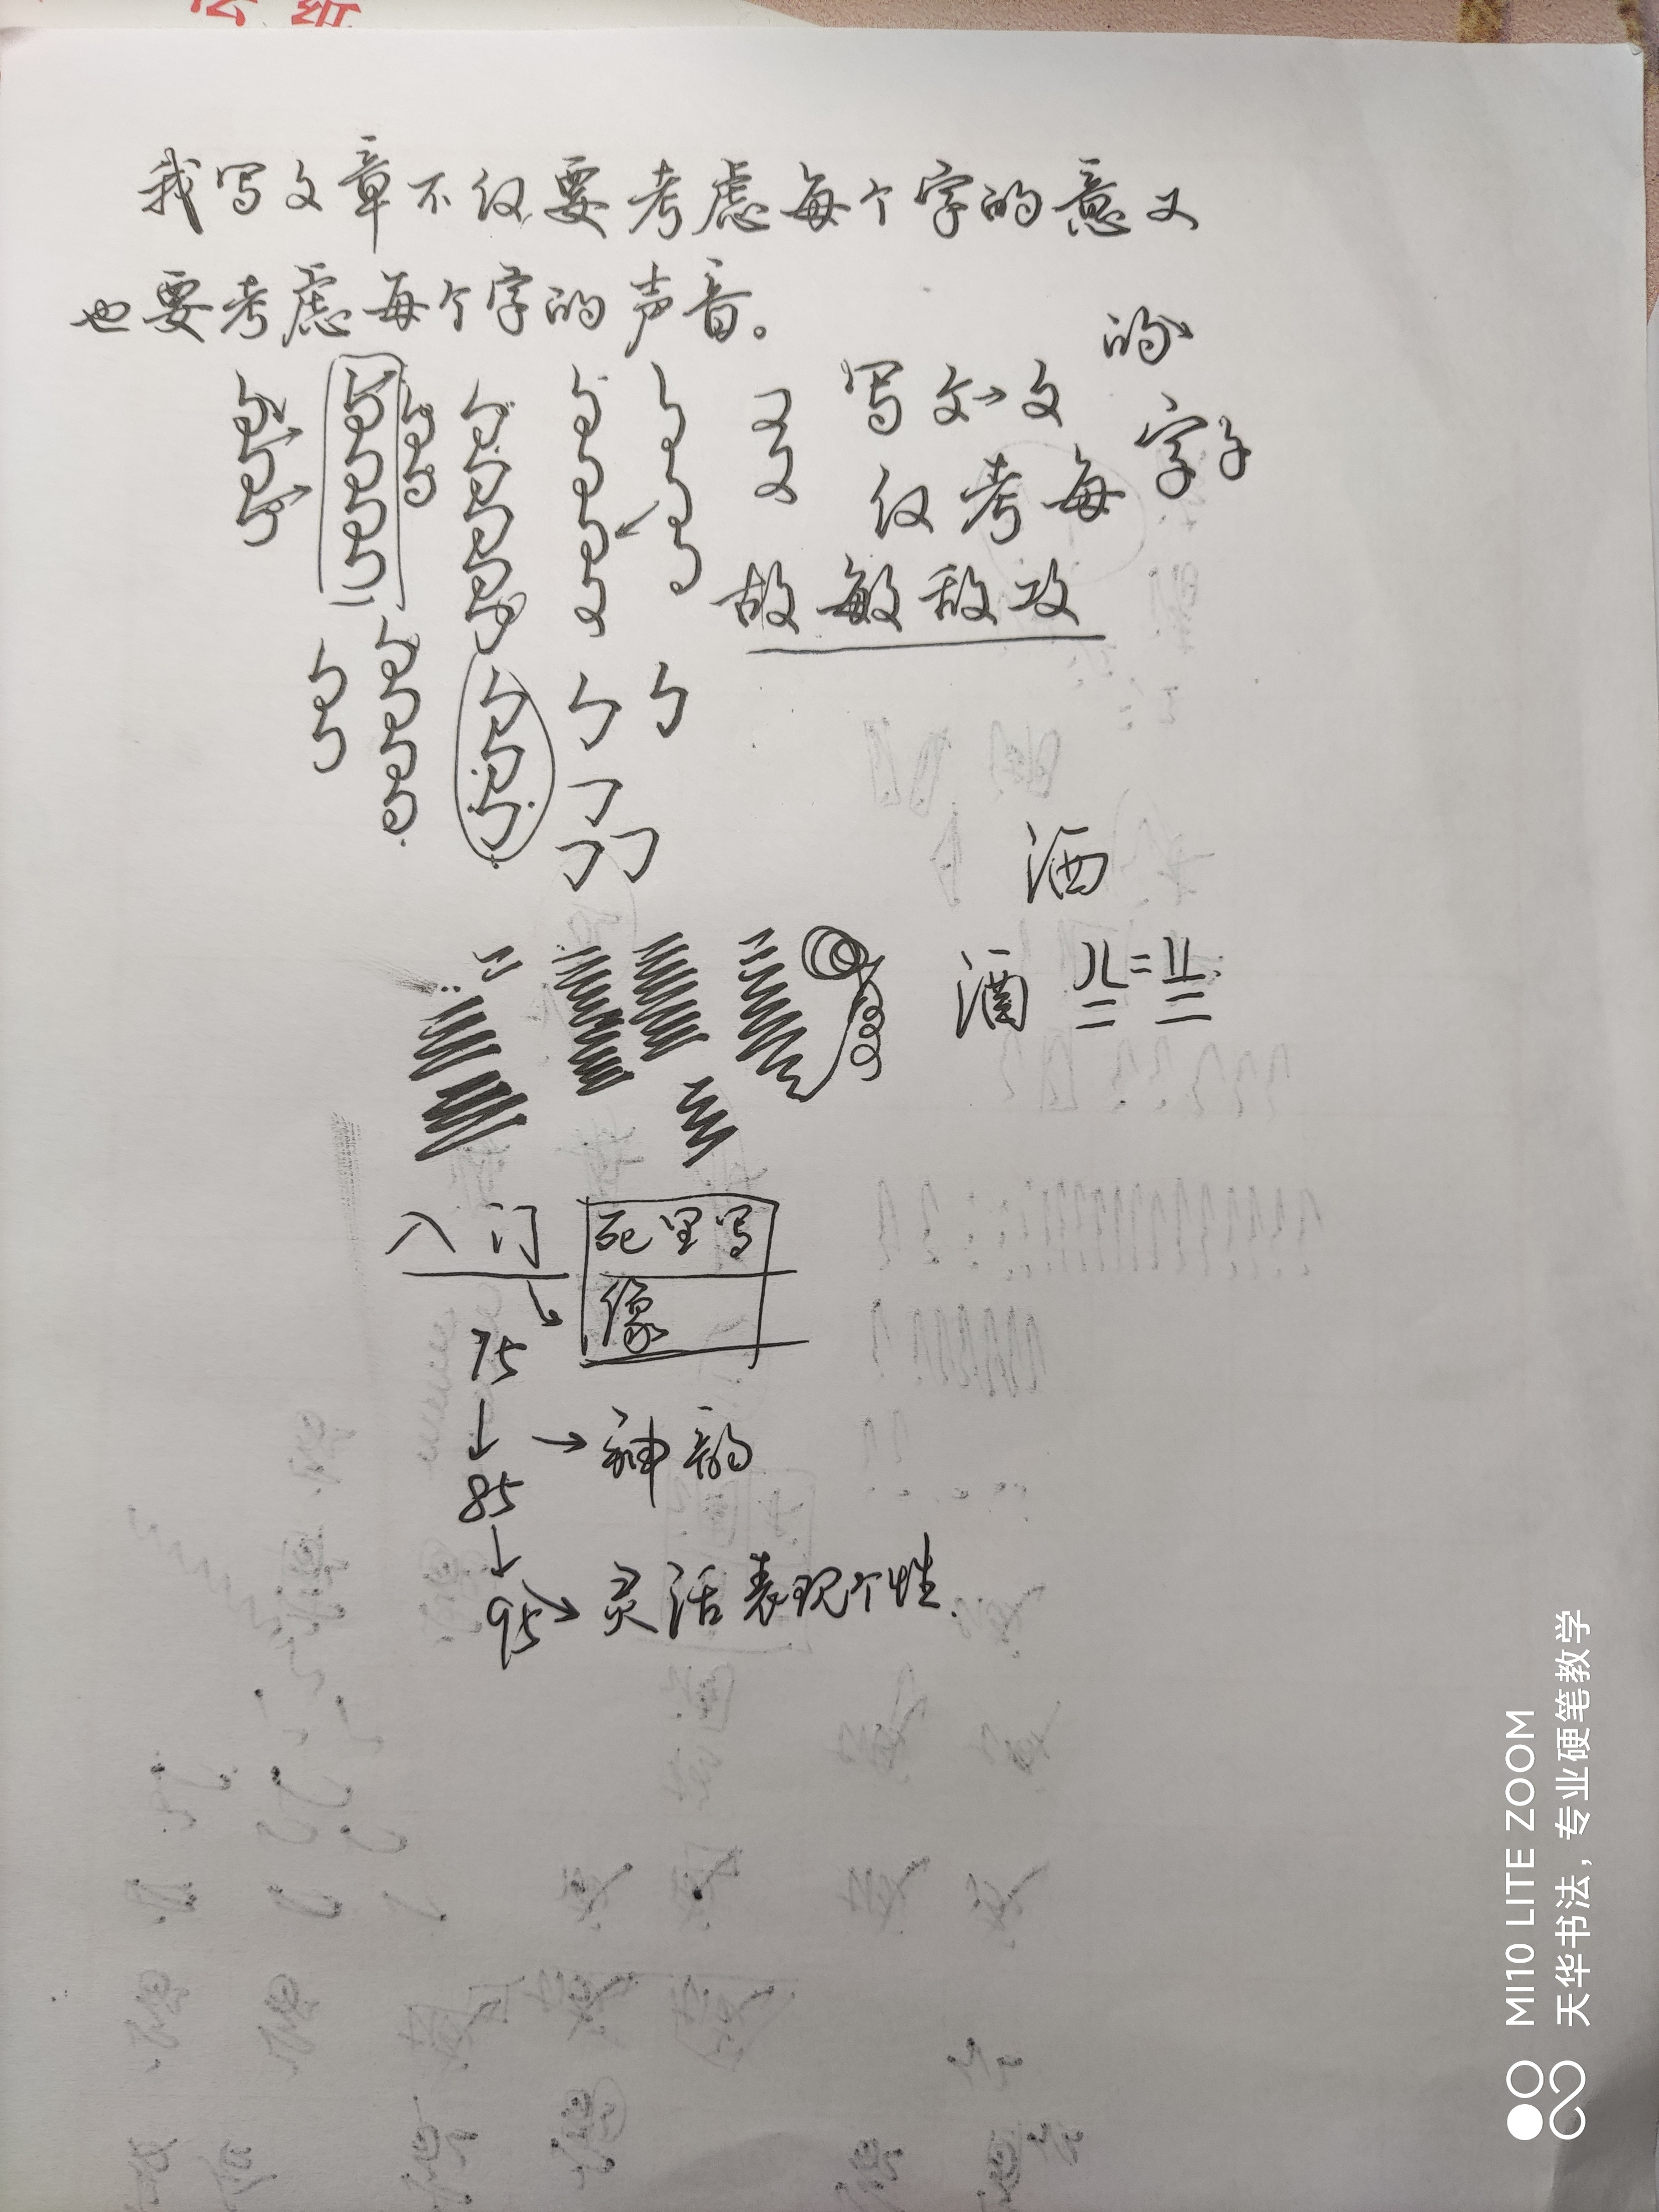 我写文章不仅要考虑每个字的意义
也要考虑每个字的声音。
的
写文→文
字子
仅考每
故敏敌攻
洒
酒
入门
死里写
像
75
↓
→神韵
85
↓
95→灵活表现个性.
MI10 LITE ZOOM
天华书法，专业硬笔教学